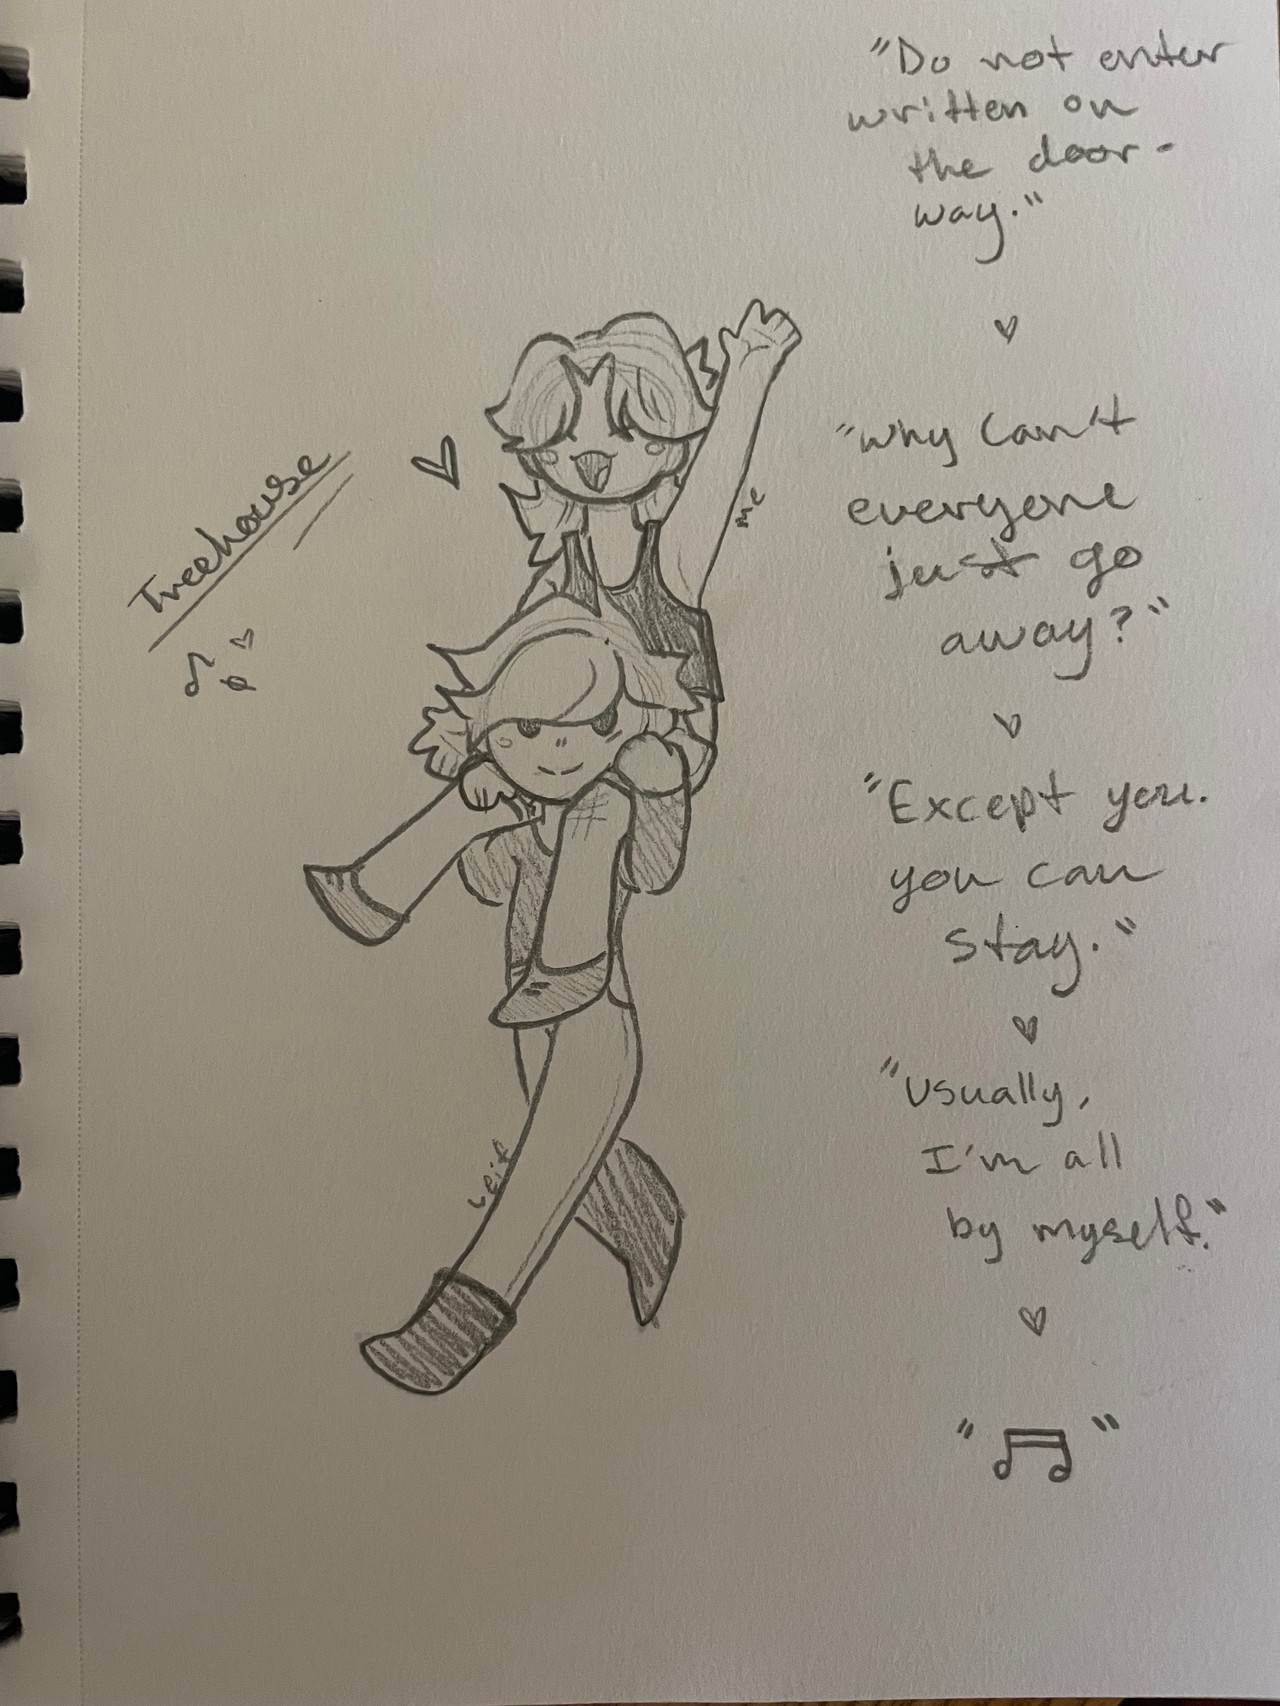 "Do not enter
written on
the door-
way."
"Why can't
everyone
just go
away?"
"Except you.
you can
stay."
"Usually,
I'm all
by myself."
Treehouse
me
Leif